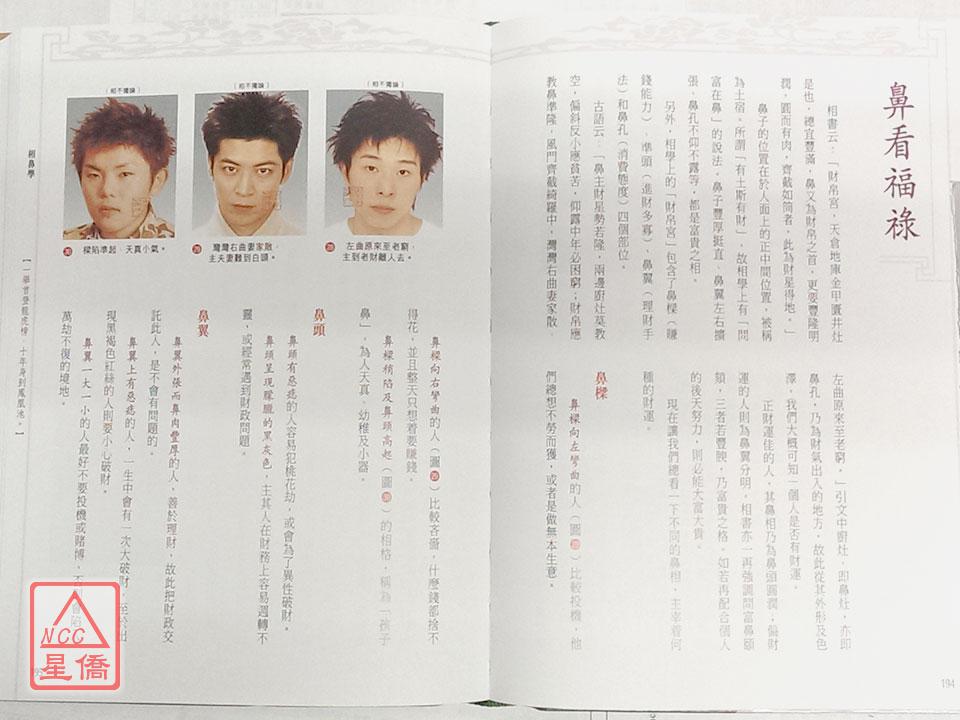 鼻看福祿
相書云：「財帛宮，天倉地庫金甲匱井灶
是也，總宜豐滿，鼻又為財帛之首，更要豐隆明
潤，圓而有肉，齊截如筒者，此為財星得地。」
鼻子的位置在於人面上的正中間位置，被稱
為土宿。所謂「有土斯有財」，故相學上有「問
富在鼻」的說法。鼻子豐厚挺直、鼻翼左右擴
張、鼻孔不仰不露等，都是富貴之相。
另外，相學上的「財帛宮」包含了鼻樑（賺
錢能力）、準頭（進財多寡）、鼻翼（理財手
法）和鼻孔（消費態度）四個部位。
古語云：「鼻主財星勢若隆，兩邊廚灶莫教
空，偏斜反小應貧苦，仰露中年必困窮；財帛應
教鼻準隆，風門齊截綺羅中，灣灣右曲妻家散，
左曲原來至老窮。」引文中廚灶，即鼻灶，亦即
鼻孔，乃為財氣出入的地方，故此從其外形及色
澤，我們大概可知一個人是否有財運。
正財運佳的人，其鼻相乃為鼻頭圓潤；偏財
運的人則為鼻翼分明，相書亦一再強調問富鼻頤
頦，三者若豐腴，乃富貴之格。如若再配合個人
的後天努力，則必能大富大貴。
現在讓我們總看一下不同的鼻相，主宰着何
種的財運。
鼻樑
鼻樑向左彎曲的人（圖28）比較投機，他
們總想不勞而獲，或者是做無本生意。
194
（相不獨論）
28 左曲原來至老窮，
主到老財離人去。
（相不獨論）
29 灣灣右曲妻家散，
主夫妻難到白頭。
（相不獨論）
30 樑陷準起，天真小氣。
鼻樑向右彎曲的人（圖29）比較吝嗇，什麼錢都捨不
得花，並且整天只想着要賺錢。
鼻樑稍陷及鼻頭高起（圖30）的相格，稱為「孩子
鼻」，為人天真、幼稚及小器。
鼻頭
鼻頭有惡痣的人容易犯桃花劫，或會為了異性破財。
鼻頭呈現朦朧的黑灰色，主其人在財務上容易週轉不
靈，或經常遇到財政問題。
鼻翼
鼻翼外張而鼻肉豐厚的人，善於理財，故此把財政交
託此人，是不會有問題的。
鼻翼上有惡痣的人，一生中會有一次大破財，至於出
現黑褐色紅絲的人則要小心破財。
鼻翼一大一小的人最好不要投機或賭博，會陷
萬劫不復的境地。
相鼻學
【一舉首登龍虎榜，十年身到鳳凰池。】
NCC
星僑